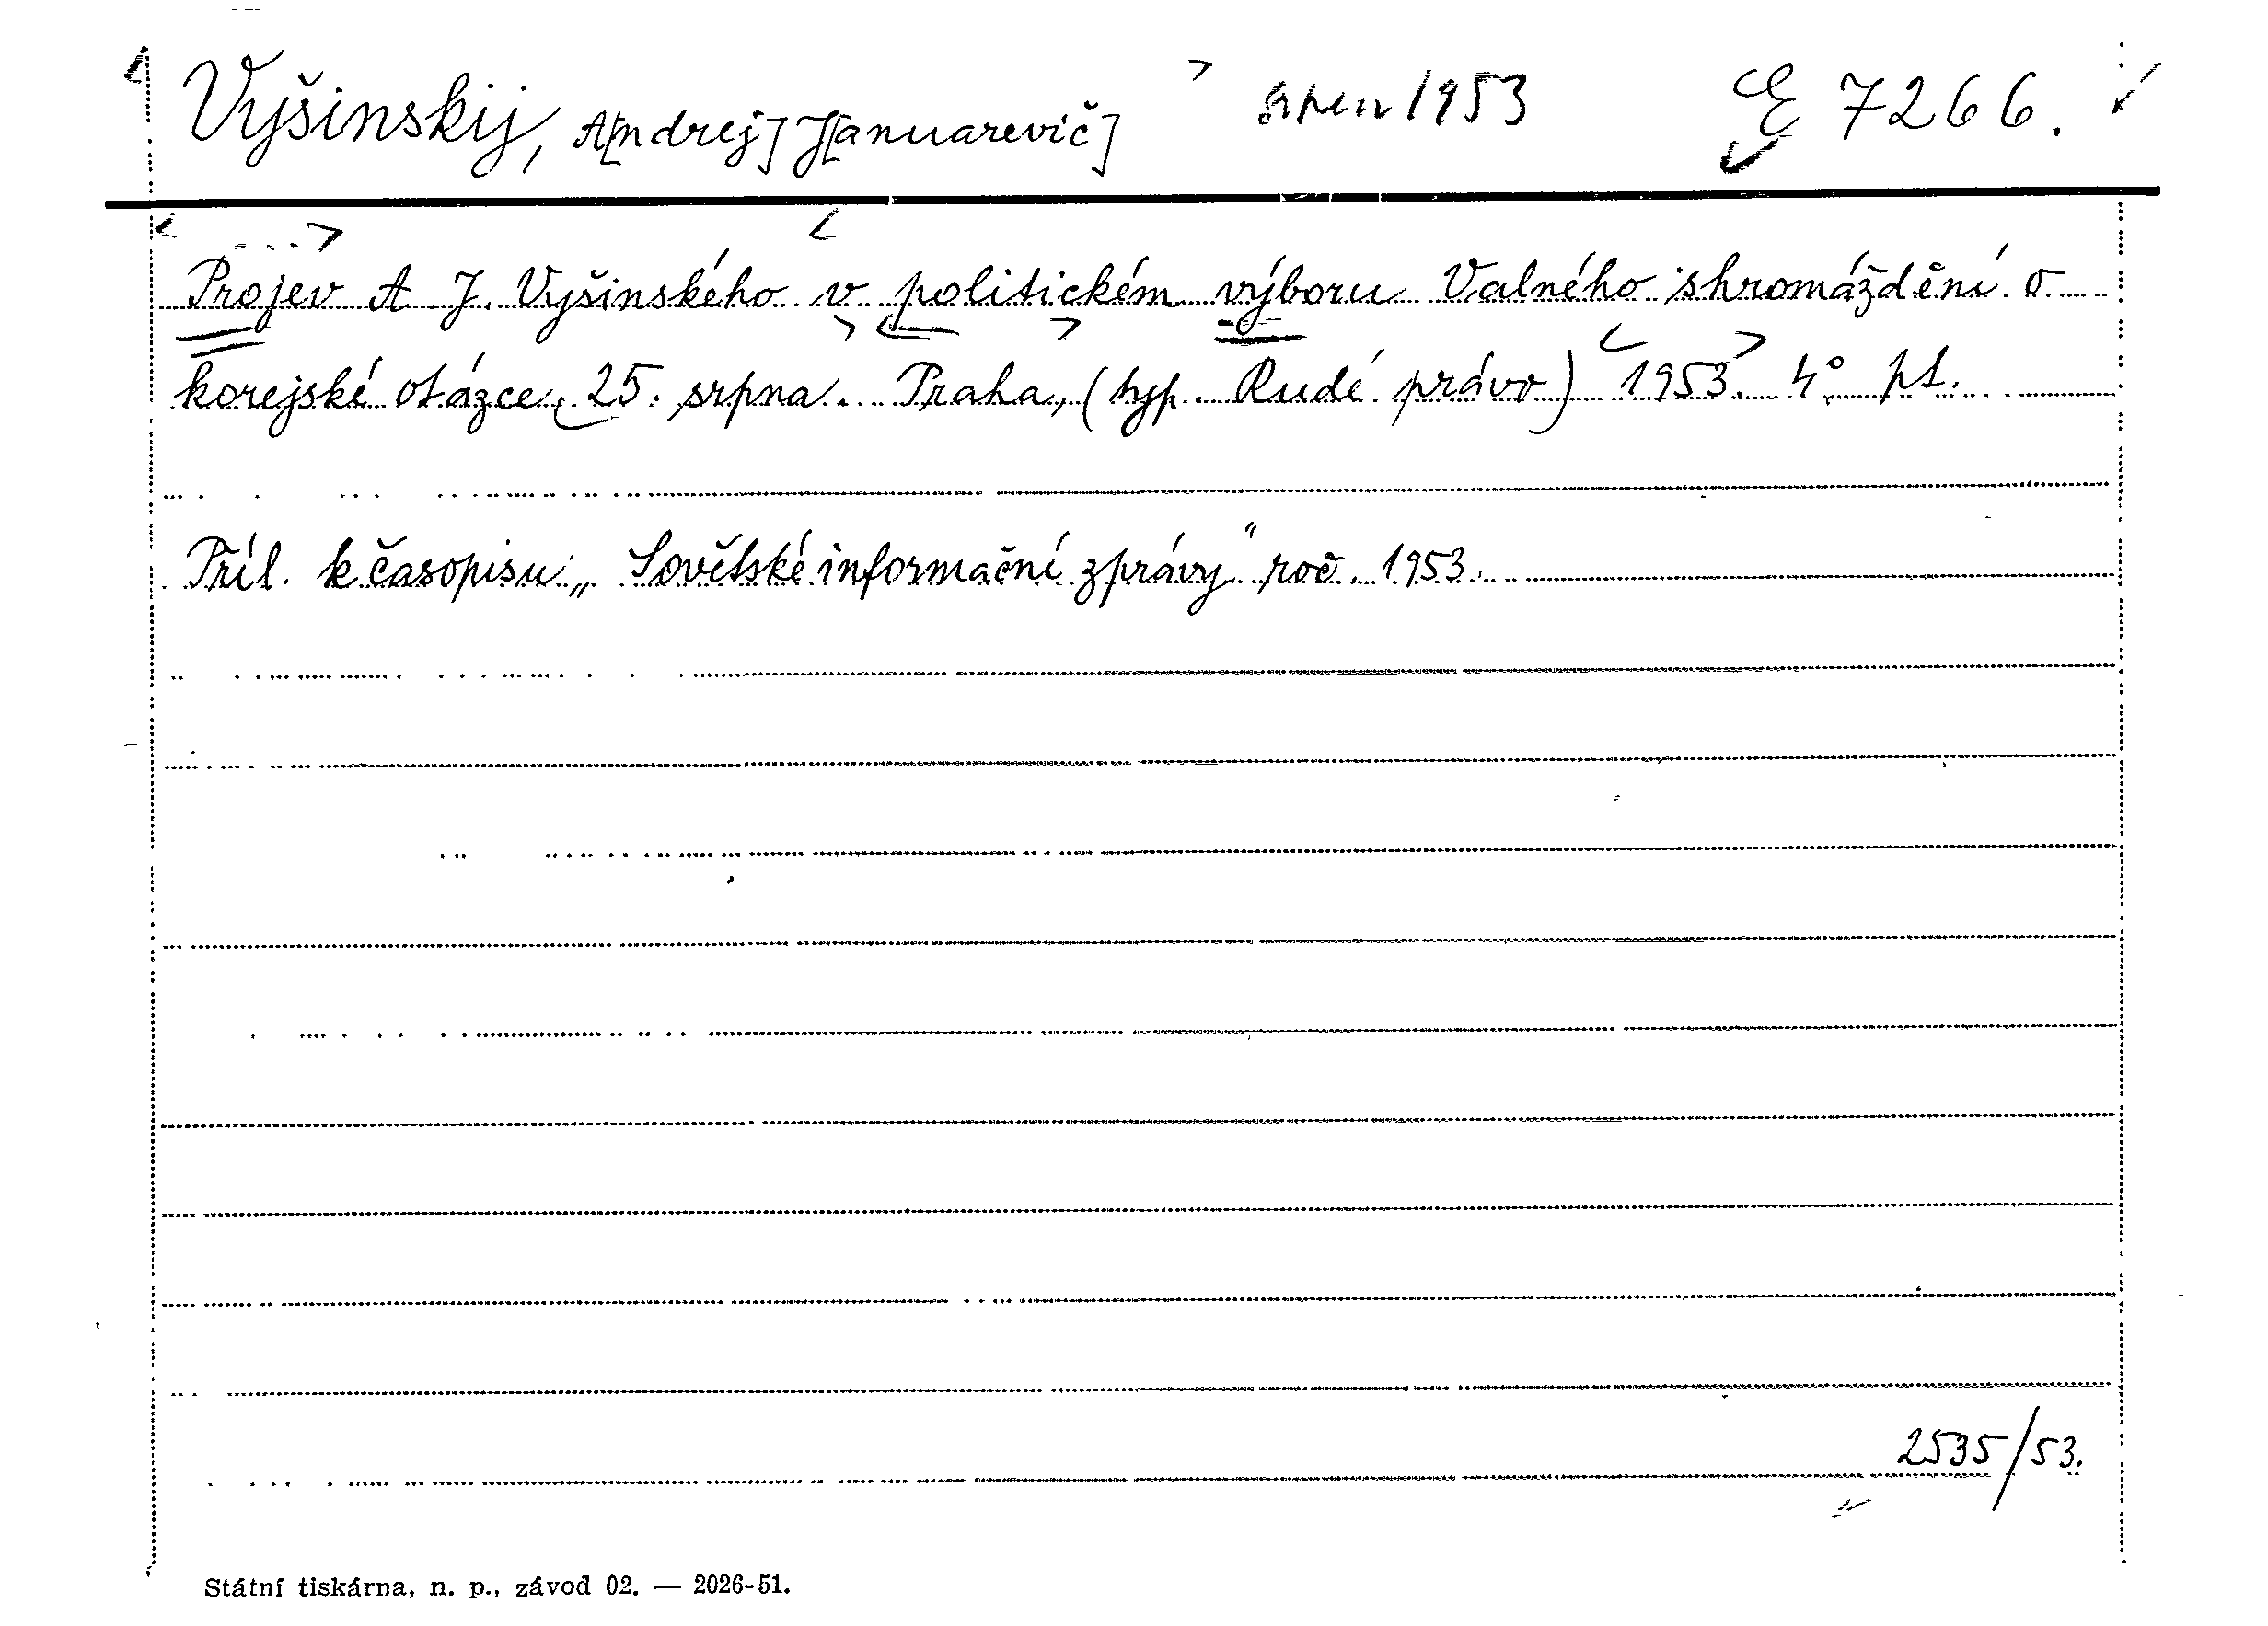 Vyšinskij, A[ndrej] J[anuarevič] srpen 1953 E 7266.
Projev A. J. Vyšinského v politickém výboru Valného shromáždění o
korejské otázce, 25. srpna. Praha, (typ. Rudé právo) 1953. 4° pt.
Příl. k časopisu „Sovětské informační zprávy" roč. 1953.
2535/53.
Státní tiskárna, n. p., závod 02. — 2026-51.